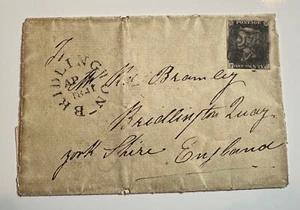 BRIDLINGTON
AP
1841
To
Bromley
Bridlington Quay
york Shire England